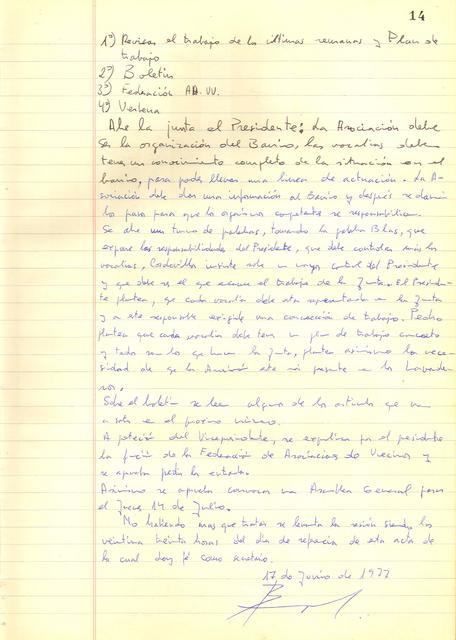 14
1º) Revisar el trabajo de las últimas semanas y Plan de
trabajo
2º) Boletín
3º) Federación AA.VV.
4º) Verbena
Abre la junta el Presidente: La Asociación debe
ser la organización del Barrio, las vocalías deben
tener un conocimiento completo de la situación en el
barrio, para poder llevar una linea de actuación. La A-
sociación debe dar una información al Barrio y después
lo para que los organismos competentes se responsabilicen.
Se abre un turno de palabras, tomando la palabra Blas, que
expone las responsabilidades del Presidente, que debe controlar más las
vocalías, insiste sobre un mayor control del Presidente
y que debe ser el que el trabajo de la Junta. El Presiden-
te plantea, que cada vocalía debe estar representada en la Junta
y a este responsable exigirle una de trabajo. Pedro
plantea que cada vocalía debe tener un plan de trabajo concreto
y todo la Junta, plantea asimismo la nece-
sidad de que la este presente en los Lavade-
ros.
Sobre el boletín se leen alguno de los articulos que van
a salir en el proximo número.
A petición del Vicepresidente, se explica por el presidente
la función de la Federación de Asociaciones de Vecinos y
se aprueba pedir la entrada.
Asimismo se aprueba convocar una Asamblea General para
el Jueves 14 de Julio.
No habiendo mas que tratar se levanta la sesión siendo las
veintiuna treinta horas del día de de esta acta de
la cual doy fé como secretario.
17 de Junio de 1977